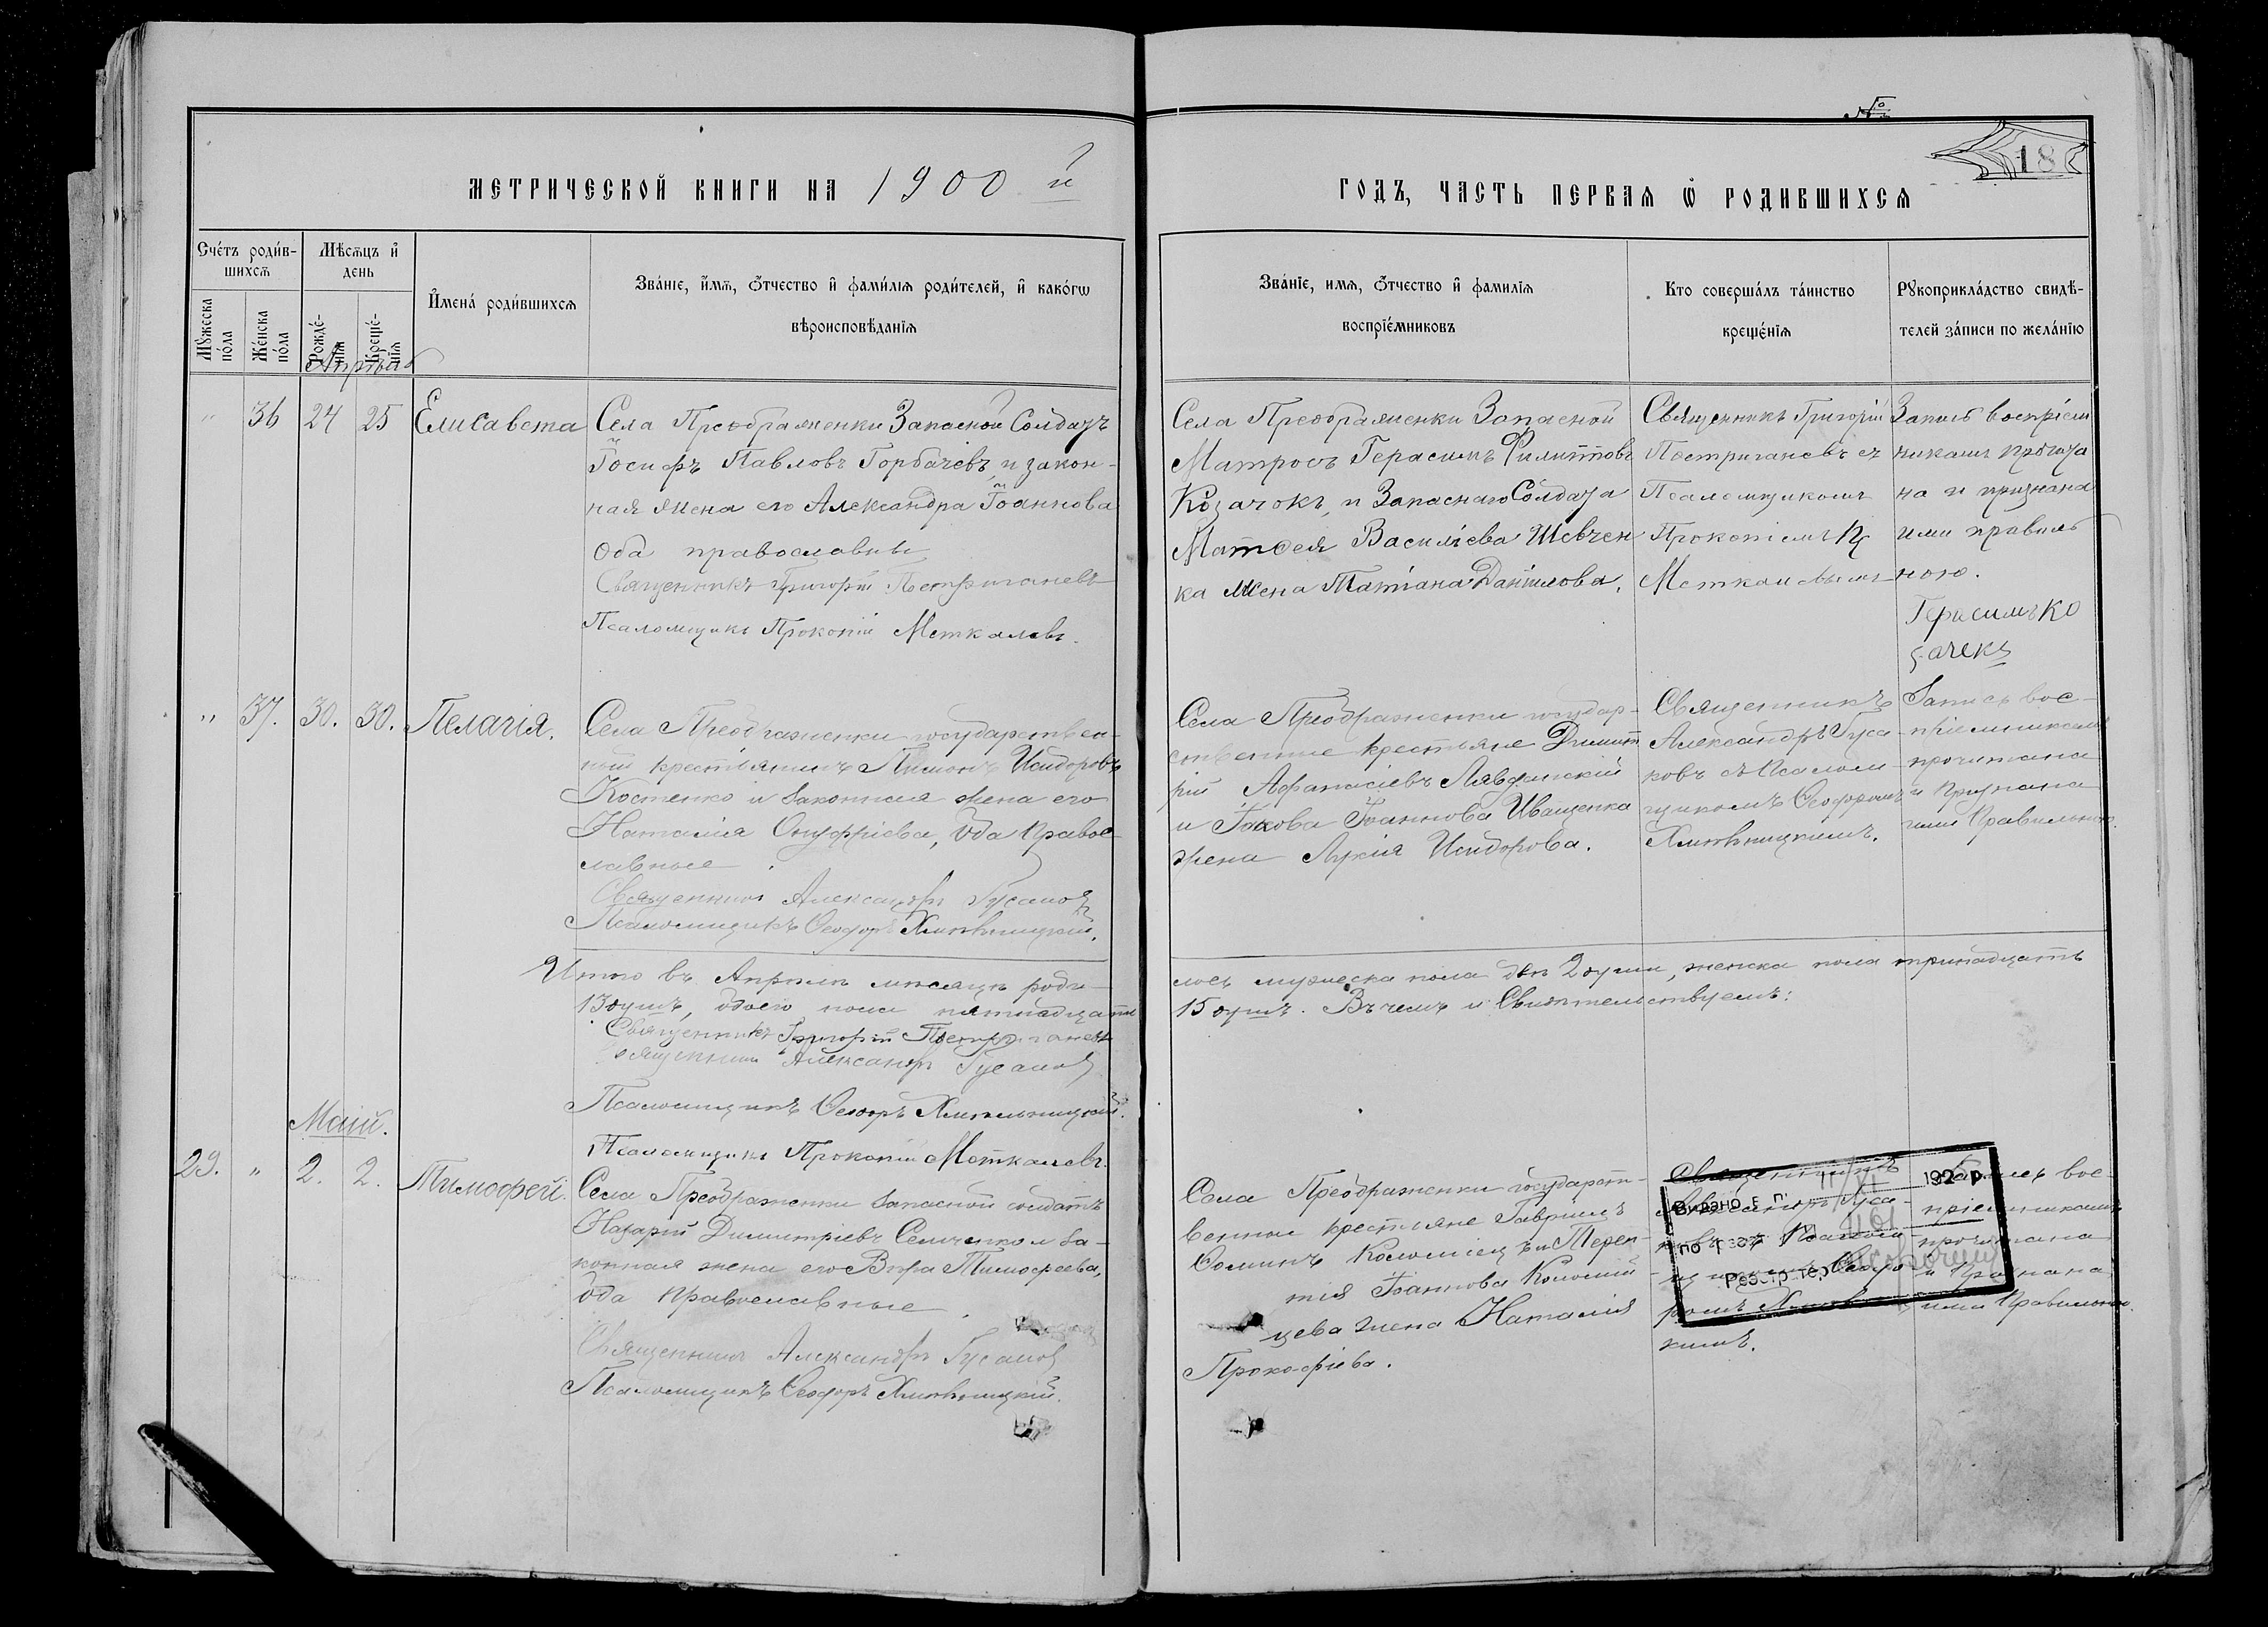 №
18
МЕТРИЧЕСКОЙ КНИГИ НА 1900 й
ГОДЪ, ЧАСТЬ ПЕРВАѦ Ѡ РОДИВШИХСѦ
Сче́тъ роди́в-
шихсѧ
Мѣсѧцъ и҆
день
И҆мена́ роди́вшихсѧ
Зва́нїе, и҆́мѧ, ѻ҆́тчество и҆ фами́лїѧ роди́телей, и҆ како́гѡ
вѣроисповѣ́данїѧ
Мꙋ́жеска
по́ла
Же́нска
по́ла
Рожде́-
нїѧ
Креще́-
нїѧ
Апрѣль
Зва́нїе, имѧ, ѻ҆́тчество и҆ фамилїѧ
воспрїе́мниковъ
Кто соверша́лъ та́инство
креще́нїѧ
Рꙋкоприкла́дство свидѣ́-
телей за́писи по жела́нїю
" 36 24 25 Елисавета
Села Преображенки Запасной Солдатъ
Іосифъ Павловъ Горбачевъ, и закон-
ная жена его Александра Іоаннова
Оба православны
Священникъ Григорій Постригачевъ
Псаломщикъ Прокопій Меткалевъ.
Села Преображенки Запасной
Матросъ Герасимъ Филипповъ
Козачокъ, и Запаснаго Солдата
Матѳея Василіева Шевчен
ка жена Татіана Даніилова.
Священникъ Григорій
Постригачевъ съ
Псаломщикомъ
Прокопіемъ
Меткалевымъ
Запись воспріем
никами прочита
на и признана
ими правиль
ною.
Герасимъ Ко
зачекъ
" 37. 30. 30. Пелагія.
Села Преображенки государствен-
ный крестьянинъ Пимонъ Исидоровъ
Костенко и законная жена его
Наталія Онуфріева, Оба Правос-
лавные.
Священникъ Александръ Гусаковъ
Псаломщикъ Ѳеодоръ Хмѣльницкій.
Села Преображенки государ-
ственные крестьяне Димит
рій Афанасіевъ
и Іакова Іоаннова Иващенка
жена Лукія Исидорова.
Священникъ
Александръ Гуса
ковъ съ Псалом
щикомъ Ѳеодоромъ
Хмѣльницкимъ.
Запись вос-
пріемниками
прочитана
и признана
ими Правильною.
Итого въ Апрѣлѣ мѣсяцѣ роди-
13 душъ, обоего пола пятнадцать
Священникъ Григорій Постригачевъ
Священникъ Александръ Гусаковъ
Псаломщикъ Ѳеодоръ Хмѣльницкій.
Псаломщикъ Прокопій Меткалевъ.
лось мужеска пола двѣ 2 души, женска пола тринадцать
15 душъ. Въ чемъ и Свидѣтельствуемъ:
Маій.
29. " 2. 2. Тимофей.
Села Преображенки запасной солдатъ
Назарій Димитріевъ Семченко и за-
конная жена его Вѣра Тимофеева,
Оба Православные.
Священникъ Александръ Гусаковъ
Псаломщикъ Ѳеодоръ Хмѣльницкій.
Села Преображенки государст-
венные крестьяне Гавриилъ
Ѳоминъ Коломіецъ и Терен-
тія Іоаннова Коломій
цева жена Наталія
Прокофіева.
Священникъ
Александръ Гуса-
ковъ съ Псалом-
щикомъ Ѳеодо-
ромъ
кимъ.
Запись вос-
пріемниками
прочитана
и Признана
ими Правильною.
192 р
по
Реєстратер